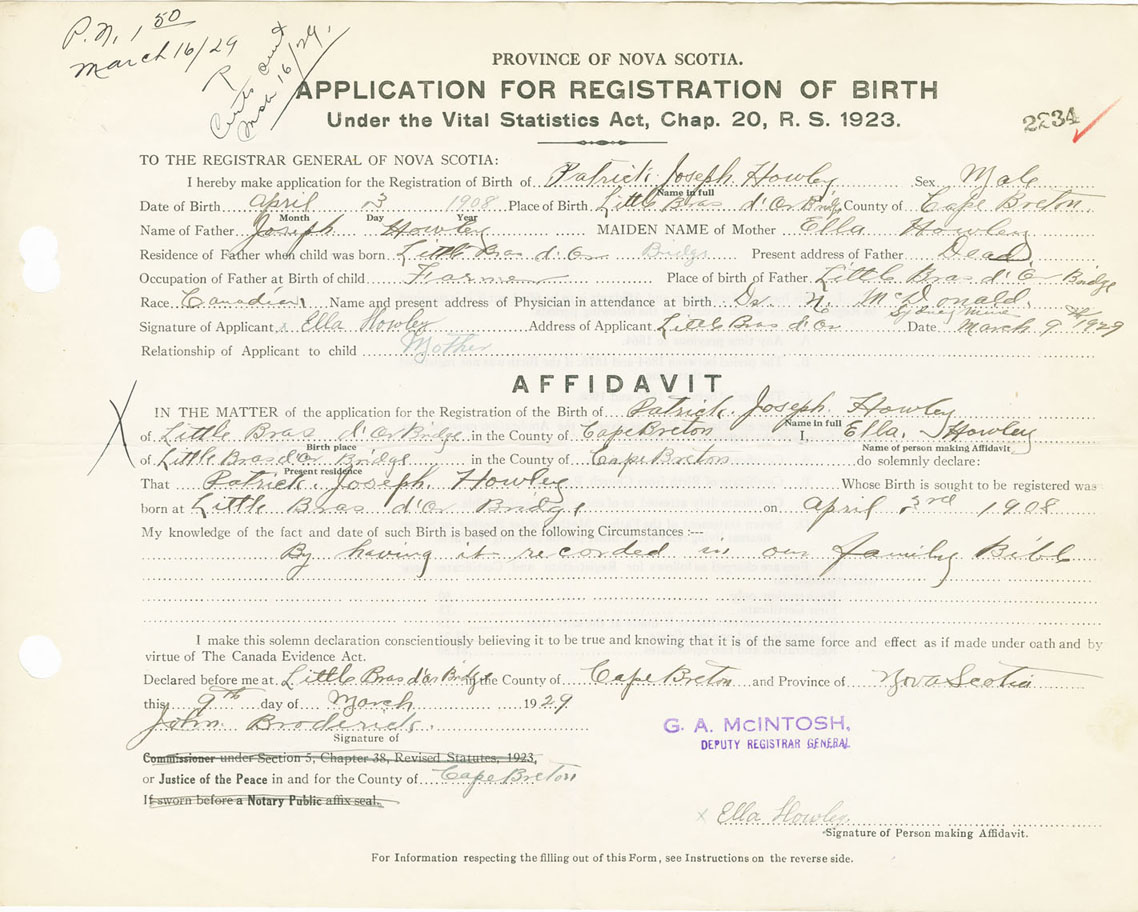 P.N. 1 50
March 16/29
P
Certs cent
Mch 16/29.
PROVINCE OF NOVA SCOTIA.
APPLICATION FOR REGISTRATION OF BIRTH
Under the Vital Statistics Act, Chap. 20, R. S. 1923.
2234
TO THE REGISTRAR GENERAL OF NOVA SCOTIA:
I hereby make application for the Registration of Birth of Patrick Joseph Howley Sex Male
Name in full
Date of Birth April 3 1908 Place of Birth Little Bras d'Or Bridge County of Cape Breton.
Month Day Year
Name of Father Joseph Howley MAIDEN NAME of Mother Ella Howley
Residence of Father when child was born Little Bras d'Or Bridge Present address of Father Dead
Occupation of Father at Birth of child Farmer Place of birth of Father Little Bras d'Or Bridge
Race Canadian Name and present address of Physician in attendance at birth Dr. N. McDonald.
Sydney Mines
Signature of Applicant x Ella Howley Address of Applicant Little Bras d'Or Date March 9th 1929
Relationship of Applicant to child Mother
AFFIDAVIT
X
IN THE MATTER of the application for the Registration of the Birth of Patrick Joseph Howley
Name in full
of Little Bras d'Or Bridge in the County of Cape Breton I, Ella Howley
Birth place Name of person making Affidavit
of Little Bras d'Or Bridge in the County of Cape Breton do solemnly declare:
Present residence
That Patrick Joseph Howley Whose Birth is sought to be registered was
born at Little Bras d'Or Bridge on April 3rd 1908
My knowledge of the fact and date of such Birth is based on the following Circumstances :---
By having it recorded in our family Bible
I make this solemn declaration conscientiously believing it to be true and knowing that it is of the same force and effect as if made under oath and by
virtue of The Canada Evidence Act.
Declared before me at Little Bras d'Or Bridge in the County of Cape Breton and Province of Nova Scotia
this 9th day of March 1929
John Broderick.
Signature of
Commissioner under Section 5, Chapter 38, Revised Statutes, 1923,
or Justice of the Peace in and for the County of Cape Breton
If sworn before a Notary Public affix seal.
G. A. McINTOSH,
DEPUTY REGISTRAR GENERAL
x Ella Howley
Signature of Person making Affidavit.
For Information respecting the filling out of this Form, see Instructions on the reverse side.